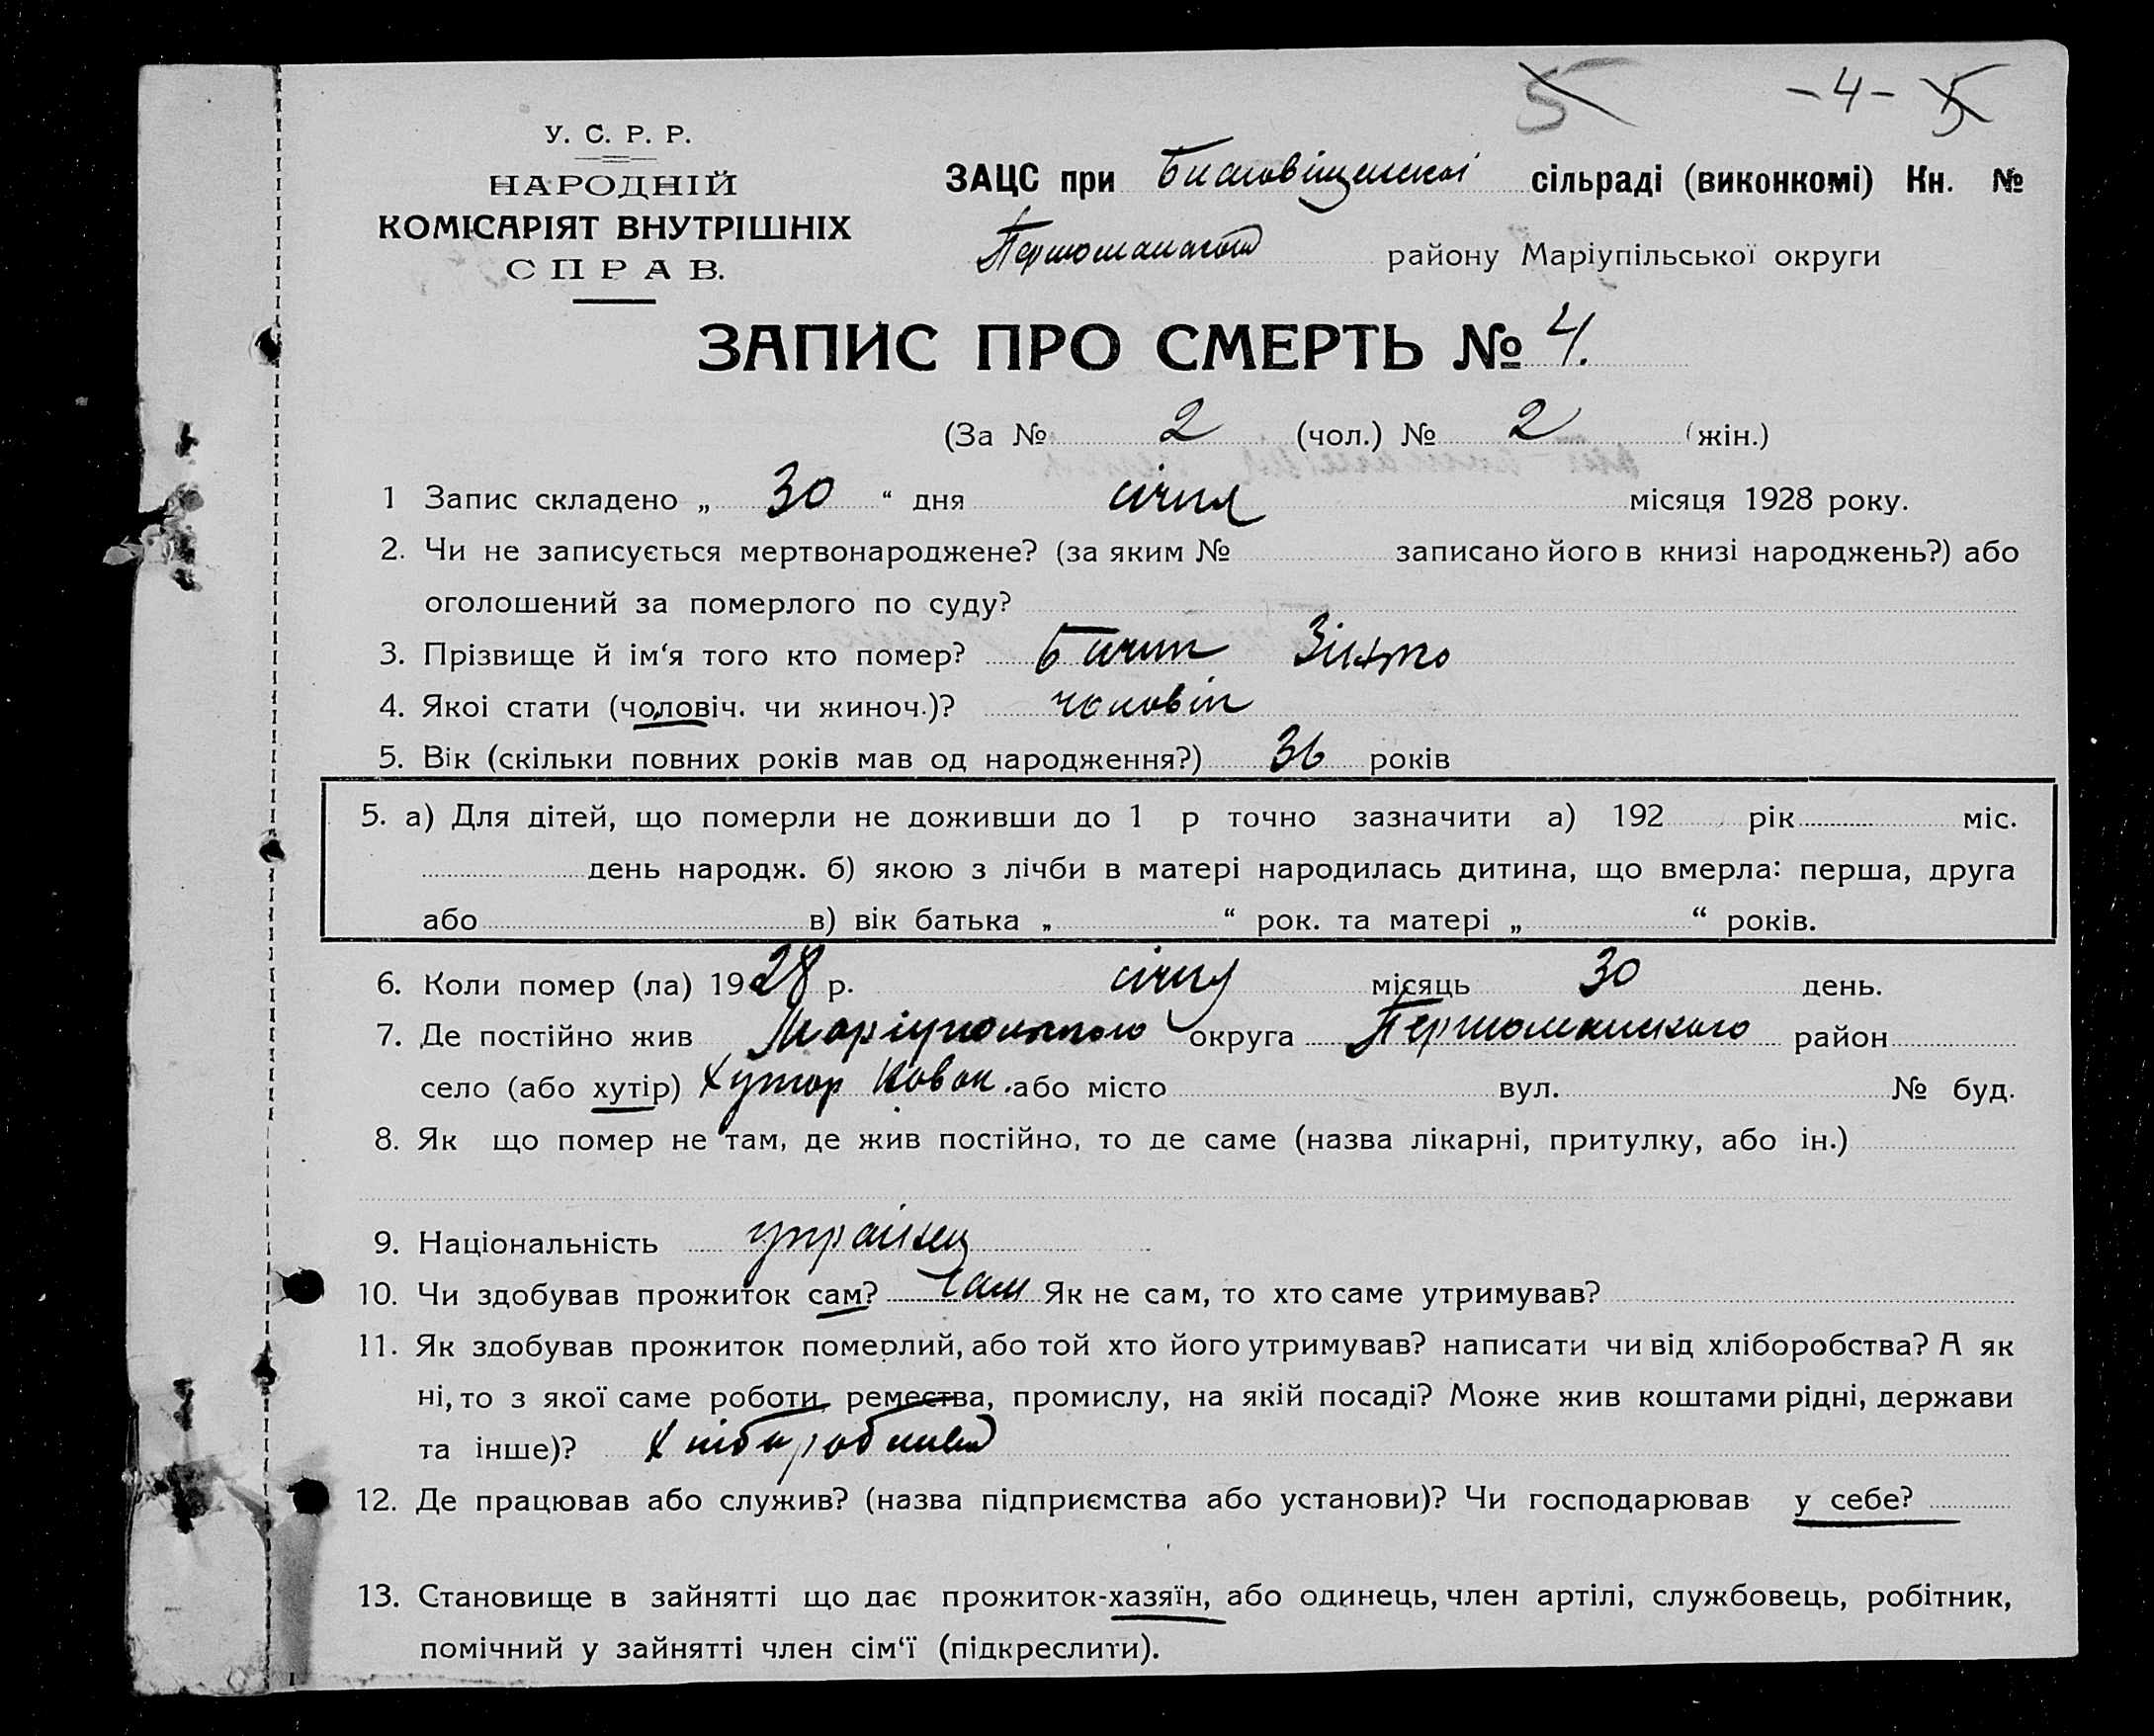 5 -4- 5
У. С. Р. Р.
НАРОДНІЙ
КОМІСАРІЯТ ВНУТРІШНІХ
СПРАВ.
ЗАЦС при сільраді (виконкомі) Кн. №
району Маріупільської округи
ЗАПИС ПРО СМЕРТЬ № 4.
(За № 2 (чол.) № 2 (жін.)
1 Запис складено „ 30 “ дня січня місяця 1928 року.
2. Чи не записується мертвонароджене? (за яким № записано його в книзі народжень?) або
оголошений за померлого по суду?
3. Прізвище й ім‘я того кто помер? Бичик
4. Якоі стати (чоловіч. чи жиноч.)? чоловік
5. Вік (скільки повних років мав од народження?) 36 років
5. а) Для дітей, що померли не доживши до 1 р точно зазначити а) 192 рік міс.
день народж. б) якою з лічби в матері народилась дитина, що вмерла: перша, друга
або в) вік батька „ “ рок. та матері „ “ років.
6. Коли помер (ла) 1928 р. січня місяць 30 день.
7. Де постійно жив округа район
село (або хутір) Хутор або місто вул. № буд.
8. Як що помер не там, де жив постійно, то де саме (назва лікарні, притулку, або ін.)
9. Національність українец
10. Чи здобував прожиток сам? Сам Як не сам, то хто саме утримував?
11. Як здобував прожиток померлий, або той хто його утримував? написати чи від хліборобства? А як
ні, то з якої саме роботи, ремества, промислу, на якій посаді? Може жив коштами рідні, держави
та інше)?
12. Де працював або служив? (назва підприємства або установи)? Чи господарював у себе?
13. Становище в зайнятті що дає прожиток-хазяїн, або одинець, член артілі, службовець, робітник,
помічний у зайнятті член сім‘ї (підкреслити).